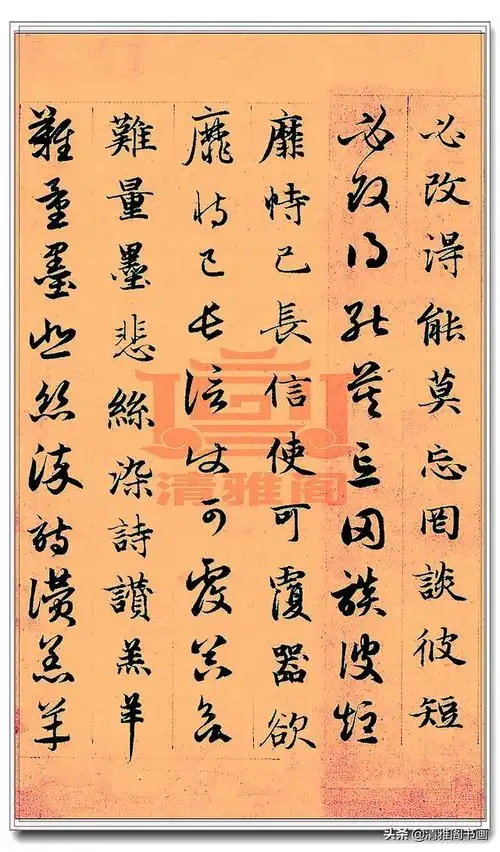 必改得能莫忘罔談彼短
必改得能莫忘罔談彼短
靡恃己長信使可覆器欲
靡恃己長信使可覆器欲
難量墨悲絲染詩讚羔羊
難量墨悲絲染詩讚羔羊
清雅阁
头条 @清雅阁书画